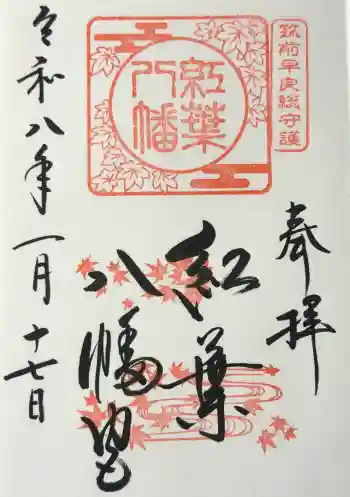 奉拝
筑前早良総守護
紅葉八幡
紅葉
八幡宮
令和八年一月十七日